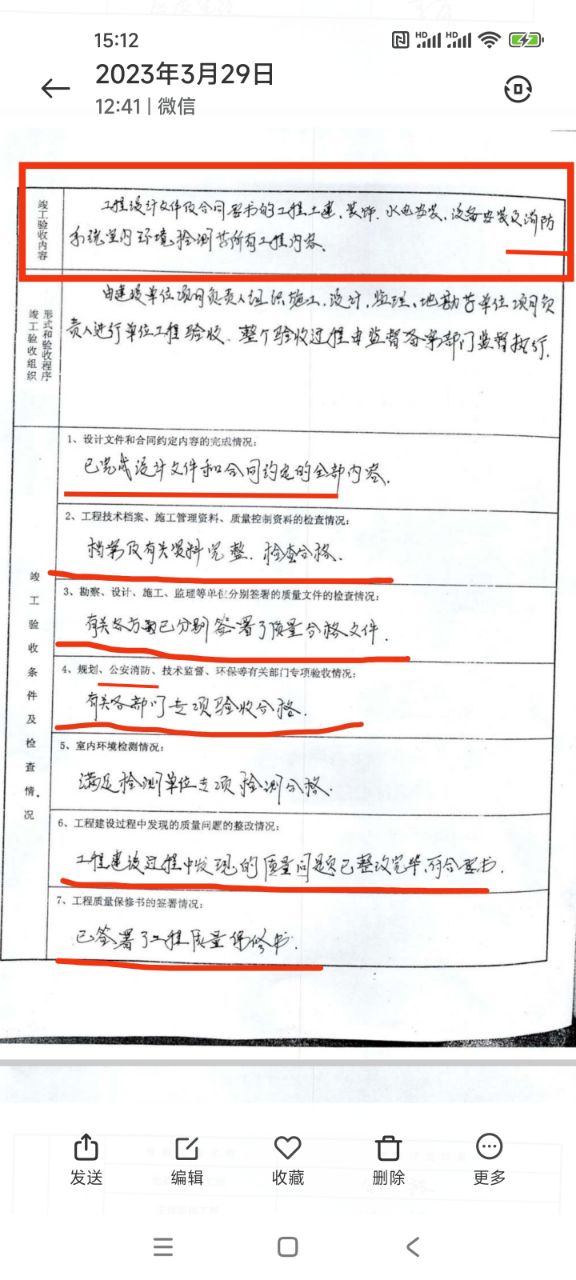 15:12
2023年3月29日
12:41 | 微信
竣工验收内容
工程设计文件及合同要求的工程土建、装饰、水电安装、设备安装及消防
系统室内环境检测等所有工程内容。
竣工验收组织形式和验收程序
由建设单位项目负责人组织施工、设计、监理、地勘等单位项目负
责人进行单位工程验收、整个验收过程由监督备案部门监督执行.
竣工验收条件及检查情况
1、设计文件和合同约定内容的完成情况:
已完成设计文件和合同约定的全部内容.
2、工程技术档案、施工管理资料、质量控制资料的检查情况:
档案及有关资料完整、检查合格.
3、勘察、设计、施工、监理等单位分别签署的质量文件的检查情况:
有关各方已分别签署了质量合格文件.
4、规划、公安消防、技术监督、环保等有关部门专项验收情况:
有关各部门专项验收合格.
5、室内环境检测情况:
满足检测单位专项检测合格.
6、工程建设过程中发现的质量问题的整改情况:
工程建设过程中发现的质量问题已整改完毕.符合要求.
7、工程质量保修书的签署情况:
已签署了工程质量保修书.
发送
编辑
收藏
删除
更多